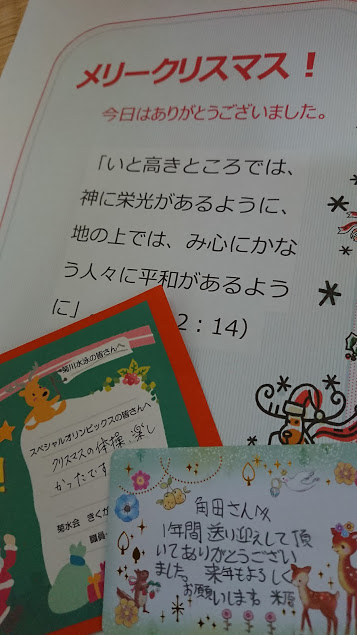 メリークリスマス！
今日はありがとうございました。
「いと高きところでは、
神に栄光があるように、
地の上では、み心にかな
う人々に平和があるよう
に」
2：14）
菊川水泳の皆さんへ
スペシャルオリンピックスの皆さんへ
クリスマスの体操、楽し
かったです
菊水会　きくが
職員
角田さんへ
1年間送り迎えして頂
いてありがとうござい
ました。来年もよろしく
お願いします。